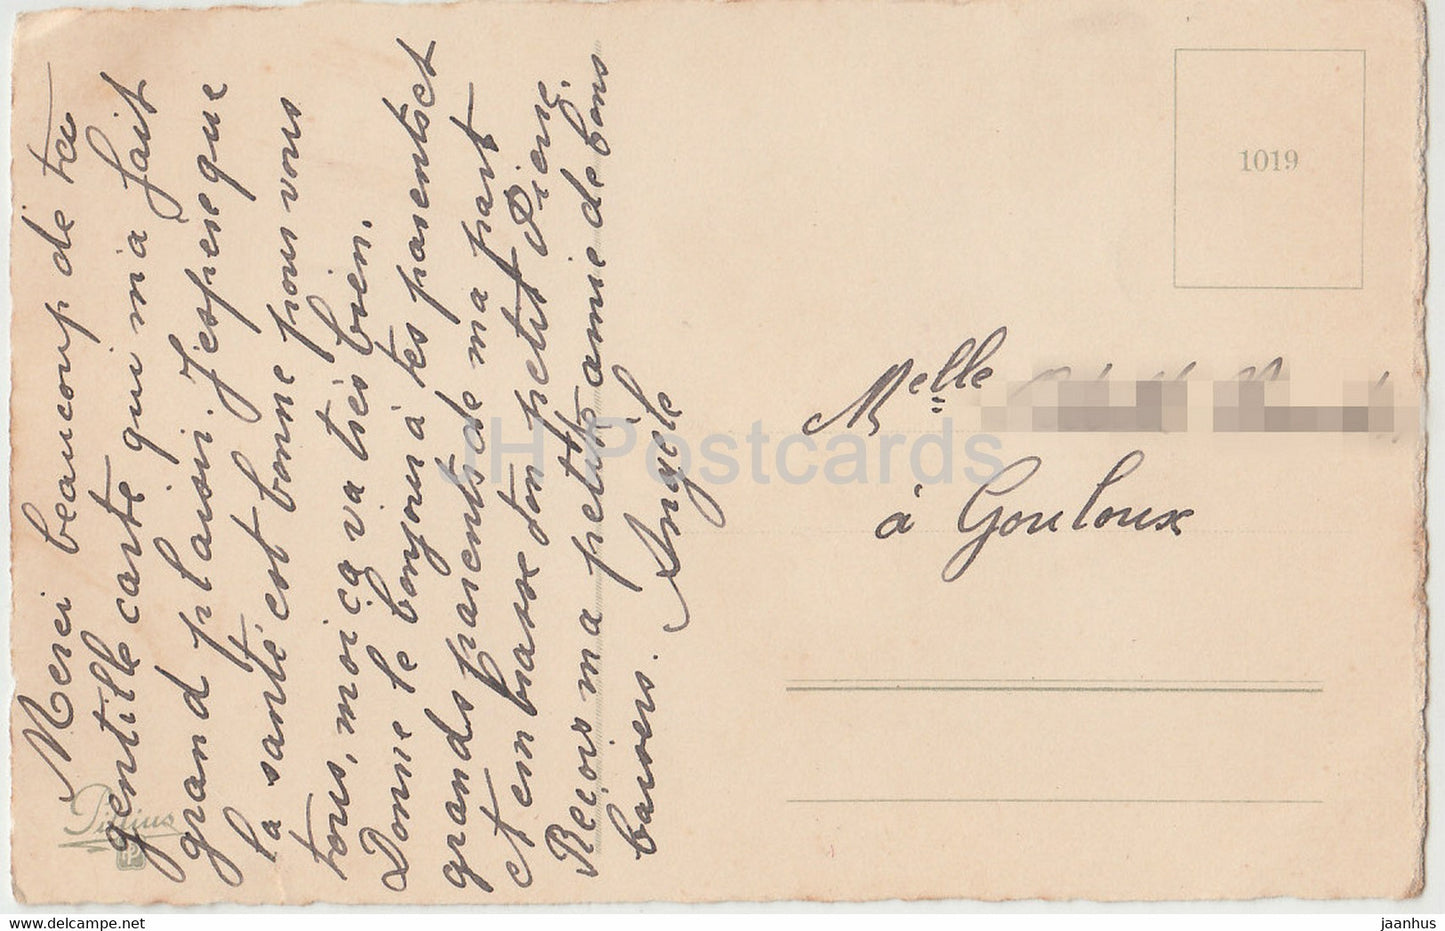 Merci beaucoup de ta
gentille carte qui m'a fait
grand plaisir. J'espère que
la santé est bonne pour vous
tous, moi ça va très bien.
Donne le bonjour à tes parents et
grands parents de ma part
et embrasse ton petit Pierre.
Reçois ma petite amie de bons
baisers. Angèle
Melle
à Gouloux
1019
JH Postcards
hippostcard.com
jaanhus